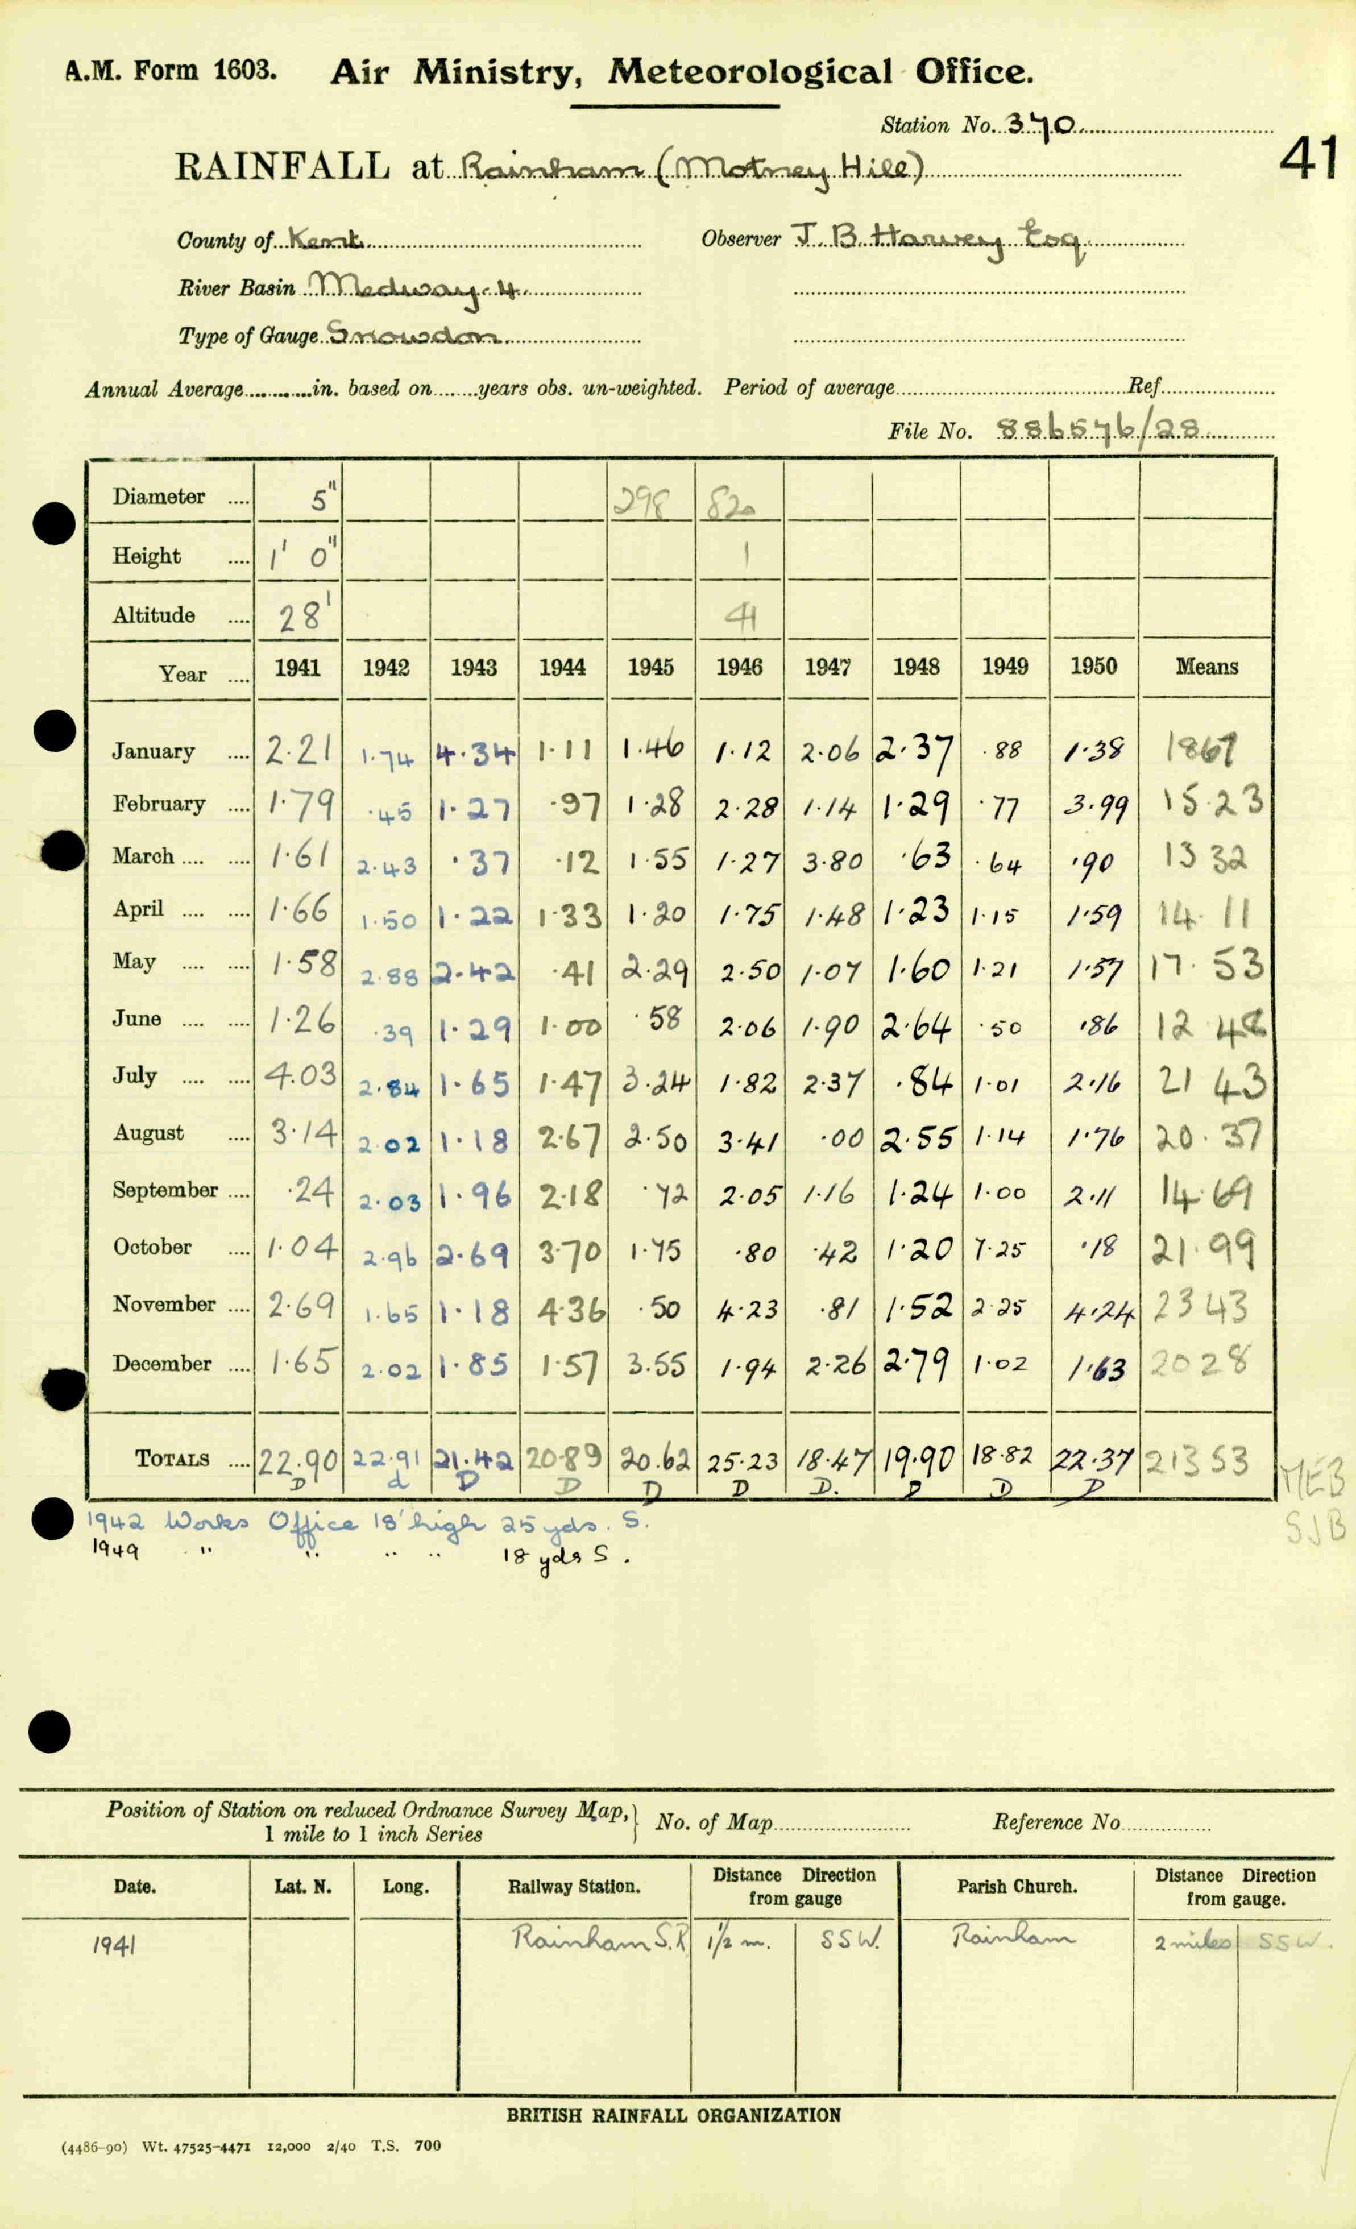 A.M. Form 1603. Air Ministry, Meteorological Office.
Station No. 370
41
RAINFALL at Rainham (Motney Hill)
County of Kent Observer J. B. Harvey Esq
River Basin Medway. 4.
Type of Gauge Snowdon
Annual Average in. based on years obs. un-weighted. Period of average Ref
File No. 886576/28
Diameter .... 5" 298 820
Height .... 1' 0" 1
Altitude .... 28' 41
Year .... 1941 1942 1943 1944 1945 1946 1947 1948 1949 1950 Means
January .... 2.21 1.74 4.34 1.11 1.46 1.12 2.06 2.37 .88 1.38 1867
February .... 1.79 .45 1.27 .97 1.28 2.28 1.14 1.29 .77 3.99 15.23
March .... .... 1.61 2.43 .37 .12 1.55 1.27 3.80 .63 .64 .90 13 32
April .... .... 1.66 1.50 1.22 1.33 1.20 1.75 1.48 1.23 1.15 1.59 14.11
May .... .... 1.58 2.88 2.42 .41 2.29 2.50 1.07 1.60 1.21 1.57 17.53
June .... .... 1.26 .39 1.29 1.00 .58 2.06 1.90 2.64 .50 .86 12 48
July .... .... 4.03 2.84 1.65 1.47 3.24 1.82 2.37 .84 1.01 2.16 21 43
August .... 3.14 2.02 1.18 2.67 2.50 3.41 .00 2.55 1.14 1.76 20.37
September .... .24 2.03 1.96 2.18 .72 2.05 1.16 1.24 1.00 2.11 14.69
October .... 1.04 2.96 2.69 3.70 1.75 .80 .42 1.20 7.25 .18 21.99
November .... 2.69 1.65 1.18 4.36 .50 4.23 .81 1.52 2.25 4.24 23 43
December .... 1.65 2.02 1.85 1.57 3.55 1.94 2.26 2.79 1.02 1.63 20 28
TOTALS .... 22.90 22.91 21.42 20.89 20.62 25.23 18.47 19.90 18.82 22.37 213 53
D d D D D D D. D D D
MEB
SJB
1942 Works Office 18' high 25 yds. S.
1949 " " " " 18 yds S.
Position of Station on reduced Ordnance Survey Map, } No. of Map Reference No
1 mile to 1 inch Series
Date. Lat. N. Long. Railway Station. Distance Direction from gauge Parish Church. Distance Direction from gauge.
1941 Rainham S.R. 1½ m. SSW. Rainham 2 miles SSW.
BRITISH RAINFALL ORGANIZATION
(4486-90) Wt. 47525-4471 12,000 2/40 T.S. 700